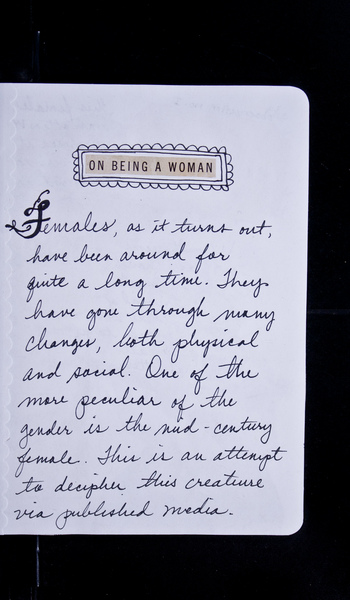 ON BEING A WOMAN
Females, as it turns out,
have been around for
quite a long time. They
have gone through many
changes, both physical
and social. One of the
more peculiar of the
gender is the mid-century
female. This is an attempt
to decipher this creature
via published media.